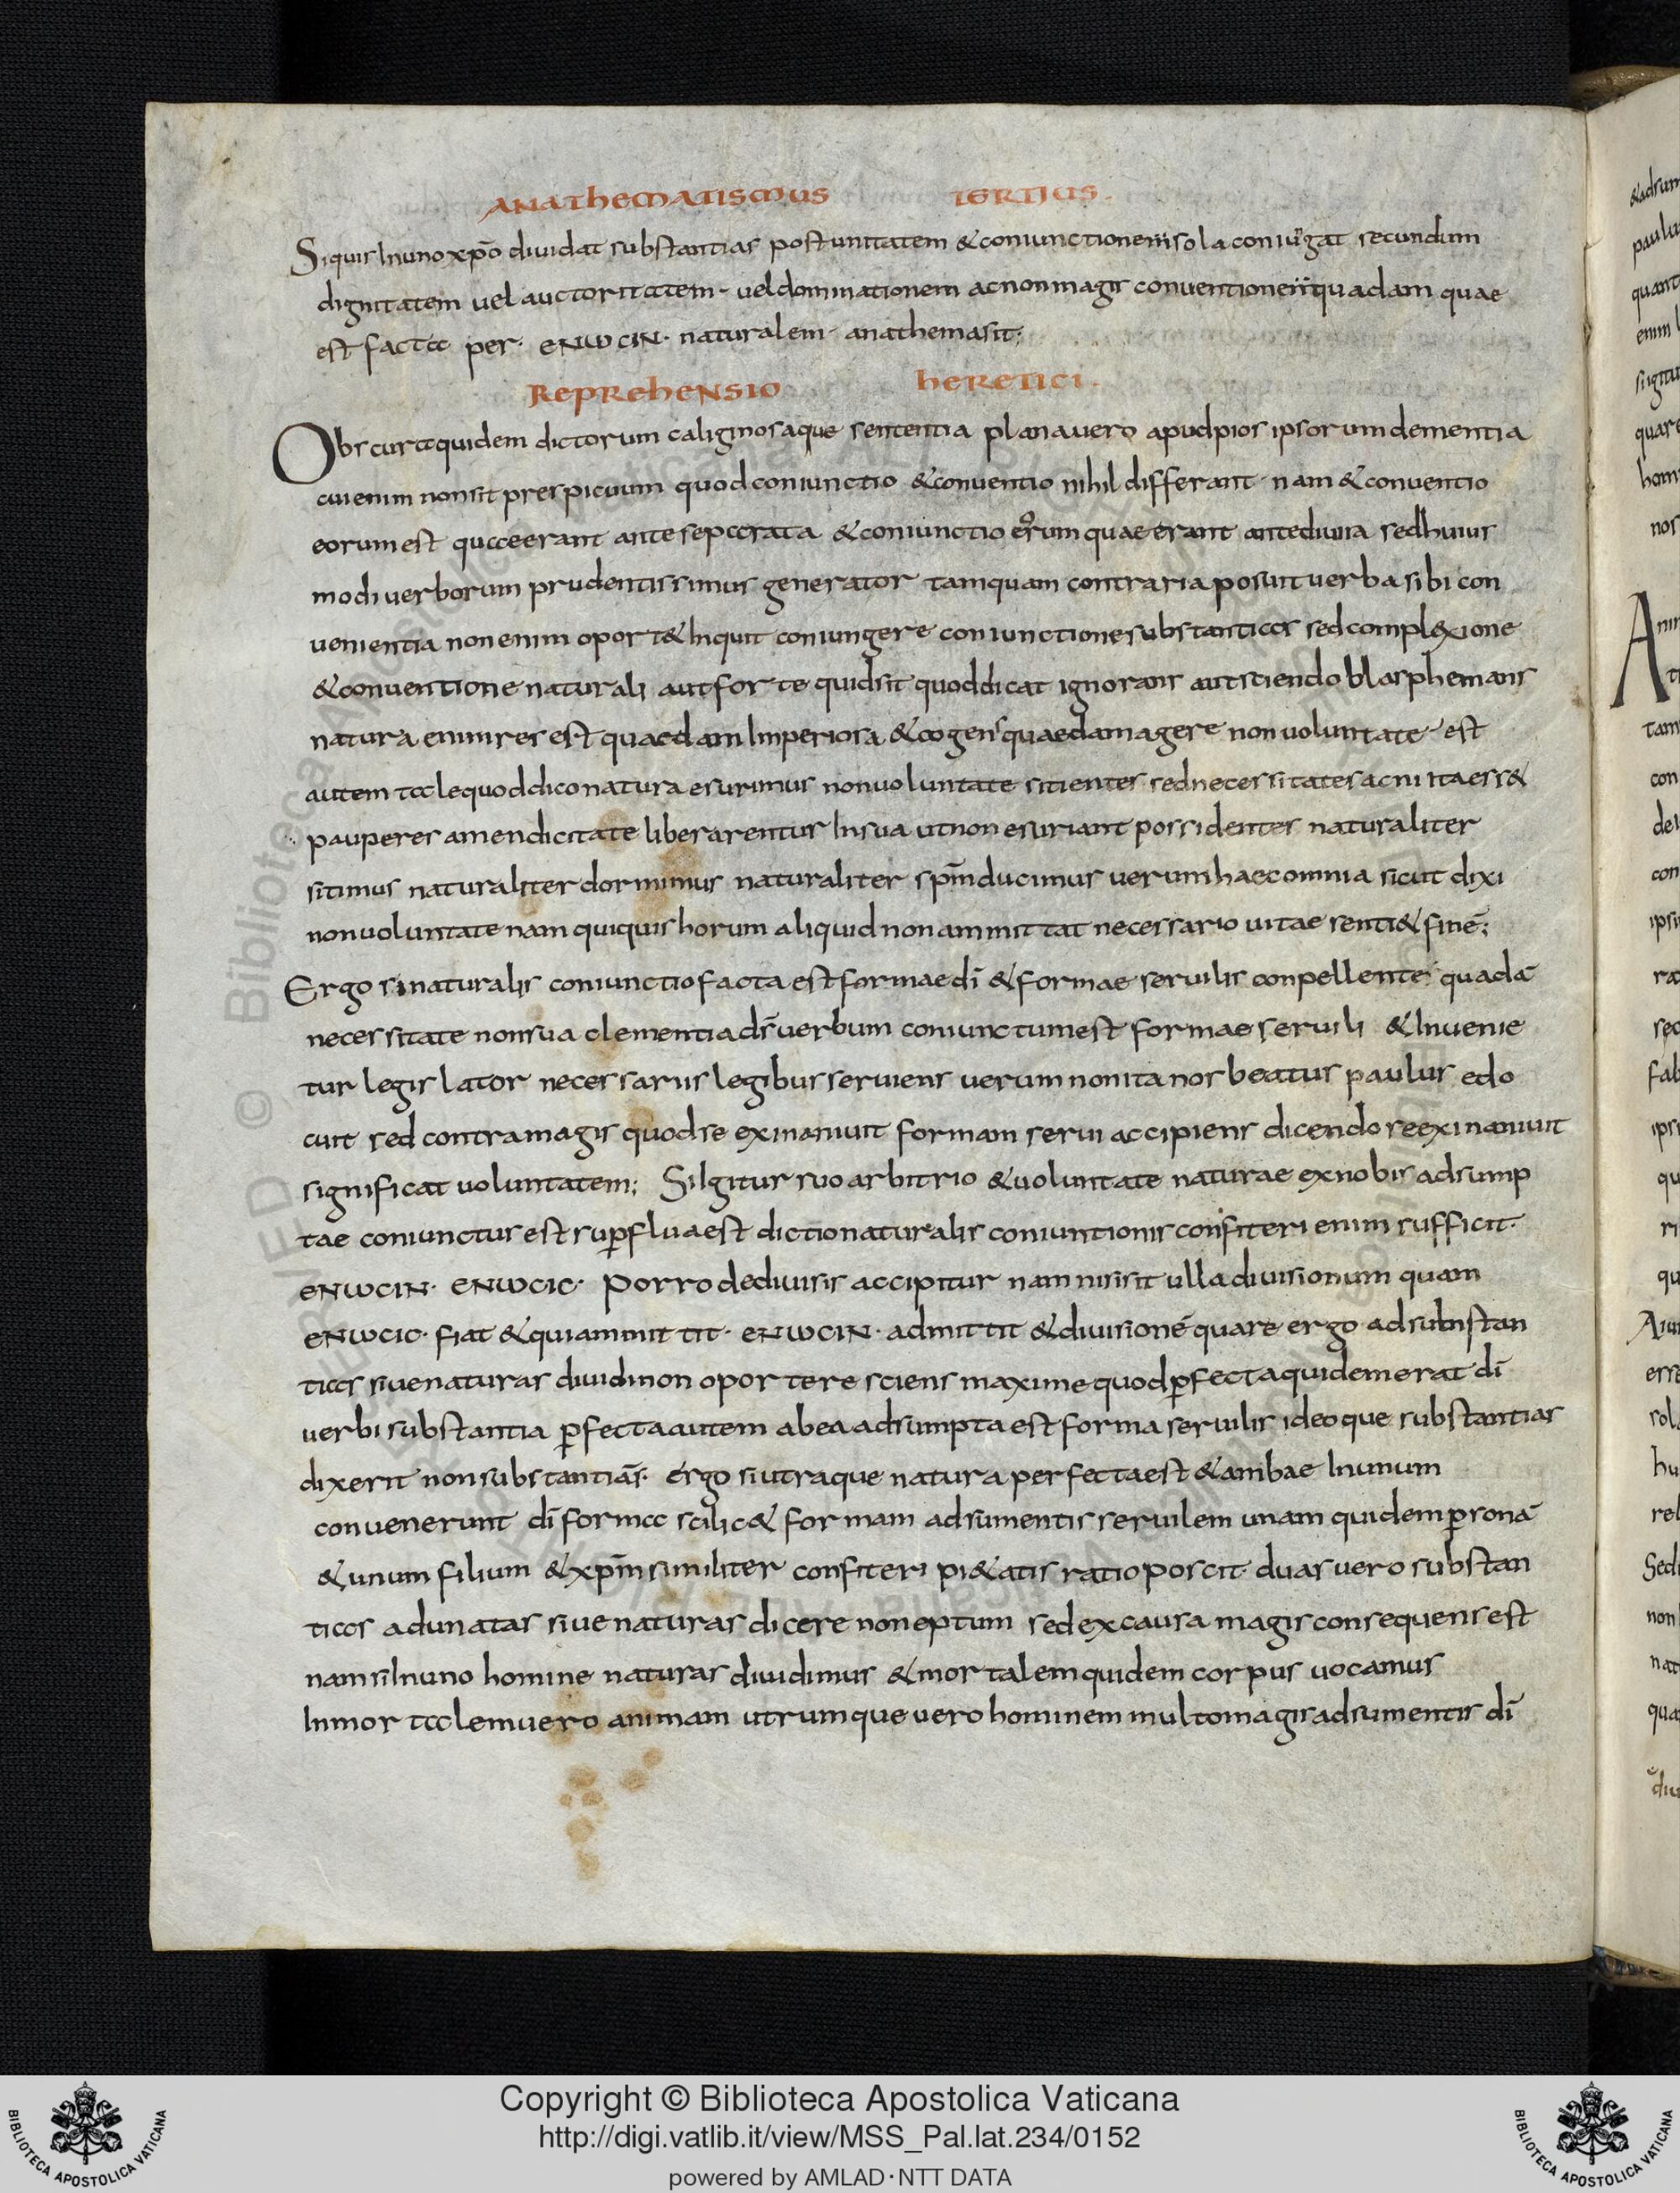 ANAThEMATISMUS TERTIUS.
Siquis Inuno xpō diuidat substantias post unitatem & coniunctionem sola coniu'gat secundum
dignitatem uel auctoritatem · uel dominationem ac non magis conuentionem quadam quae
est facta per · ENWCIN · naturalem · anathema sit;
REPREhENSIO hERETICI.
Obscura quidem dictorum caliginosaque sententia plana uero apud pios ipsorum dementia
cui enim non sit prespicuum quod coniunctio & conuentio nihil differant · nam & conuentio
eorum est quae erant ante separata & coniunctio eorum quae erant ante diuisa sed huius
modi uerborum prudentissimus generator tamquam contraria posuit uerba sibi con
uenientia non enim oport& Inquit coniungere coniunctione substantias sed complexione
& conuentione naturali aut forte quid sit quod dicat ignorans aut sciendo blasphemans
natura enim res est quaedam Imperiosa & cogens quaedam agere non uoluntate · est
autem tale quod dico natura esurimus non uoluntate sitientes sed necessitates ac ni ita ess&
pauperes a mendicitate liberarentur Insua ut non esuriant possidentes naturaliter
sitimus naturaliter dormimus naturaliter spm̄ ducimus uerum haec omnia sicut dixi
non uoluntate nam quiquis horum aliquid non ammittat necessario uitae senti& finē;
Ergo si naturalis coniunctio facta est formae dī & formae seruilis conpellente quadā
necessitate non sua clementia ds̄ uerbum coniunctum est formae seruili & Inuenie
tur legislator necessariis legibus seruiens uerum non ita nos beatus paulus edo
cuit sed contra magis quod se exinaniuit formam serui accipiens dicendo se exinaniuit
significat uoluntatem; SiIgitur suo arbitrio & uoluntate naturae ex nobis adsump
tae coniunctus est supflua est dictio naturalis coniuntionis confiteri enim sufficit ·
ENWCIN · ENWCIC · Porro de diuisis accipitur nam nisi sit ulla diuisionum quam
ENWCIC · fiat & qui ammittit · ENWCIN · admittit & diuisionē quare ergo ad substan
tias siue naturas diuidi non oportere sciens maxime quod pfecta quidem erat dī
uerbi substantia pfecta autem ab ea adsumpta est forma seruilis ideoque substantias
dixerit non substantiās · ergo si utraque natura perfecta est & ambae Inunum
conuenerunt dī forma scilic& formam adsumentis seruilem unam quidem psonā
& unum filium & xpm̄ similiter confiteri pi&atis ratio poscit · duas uero substan
tias adunatas siue naturas dicere non eptum sed ex causa magis consequens est
nam siInuno homine naturas diuidimus & mortalem quidem corpus uocamus
Inmortalem uero animam utrumque uero hominem multo magis adsumentis dī
Copyright © Biblioteca Apostolica Vaticana
http://digi.vatlib.it/view/MSS_Pal.lat.234/0152
powered by AMLAD·NTT DATA